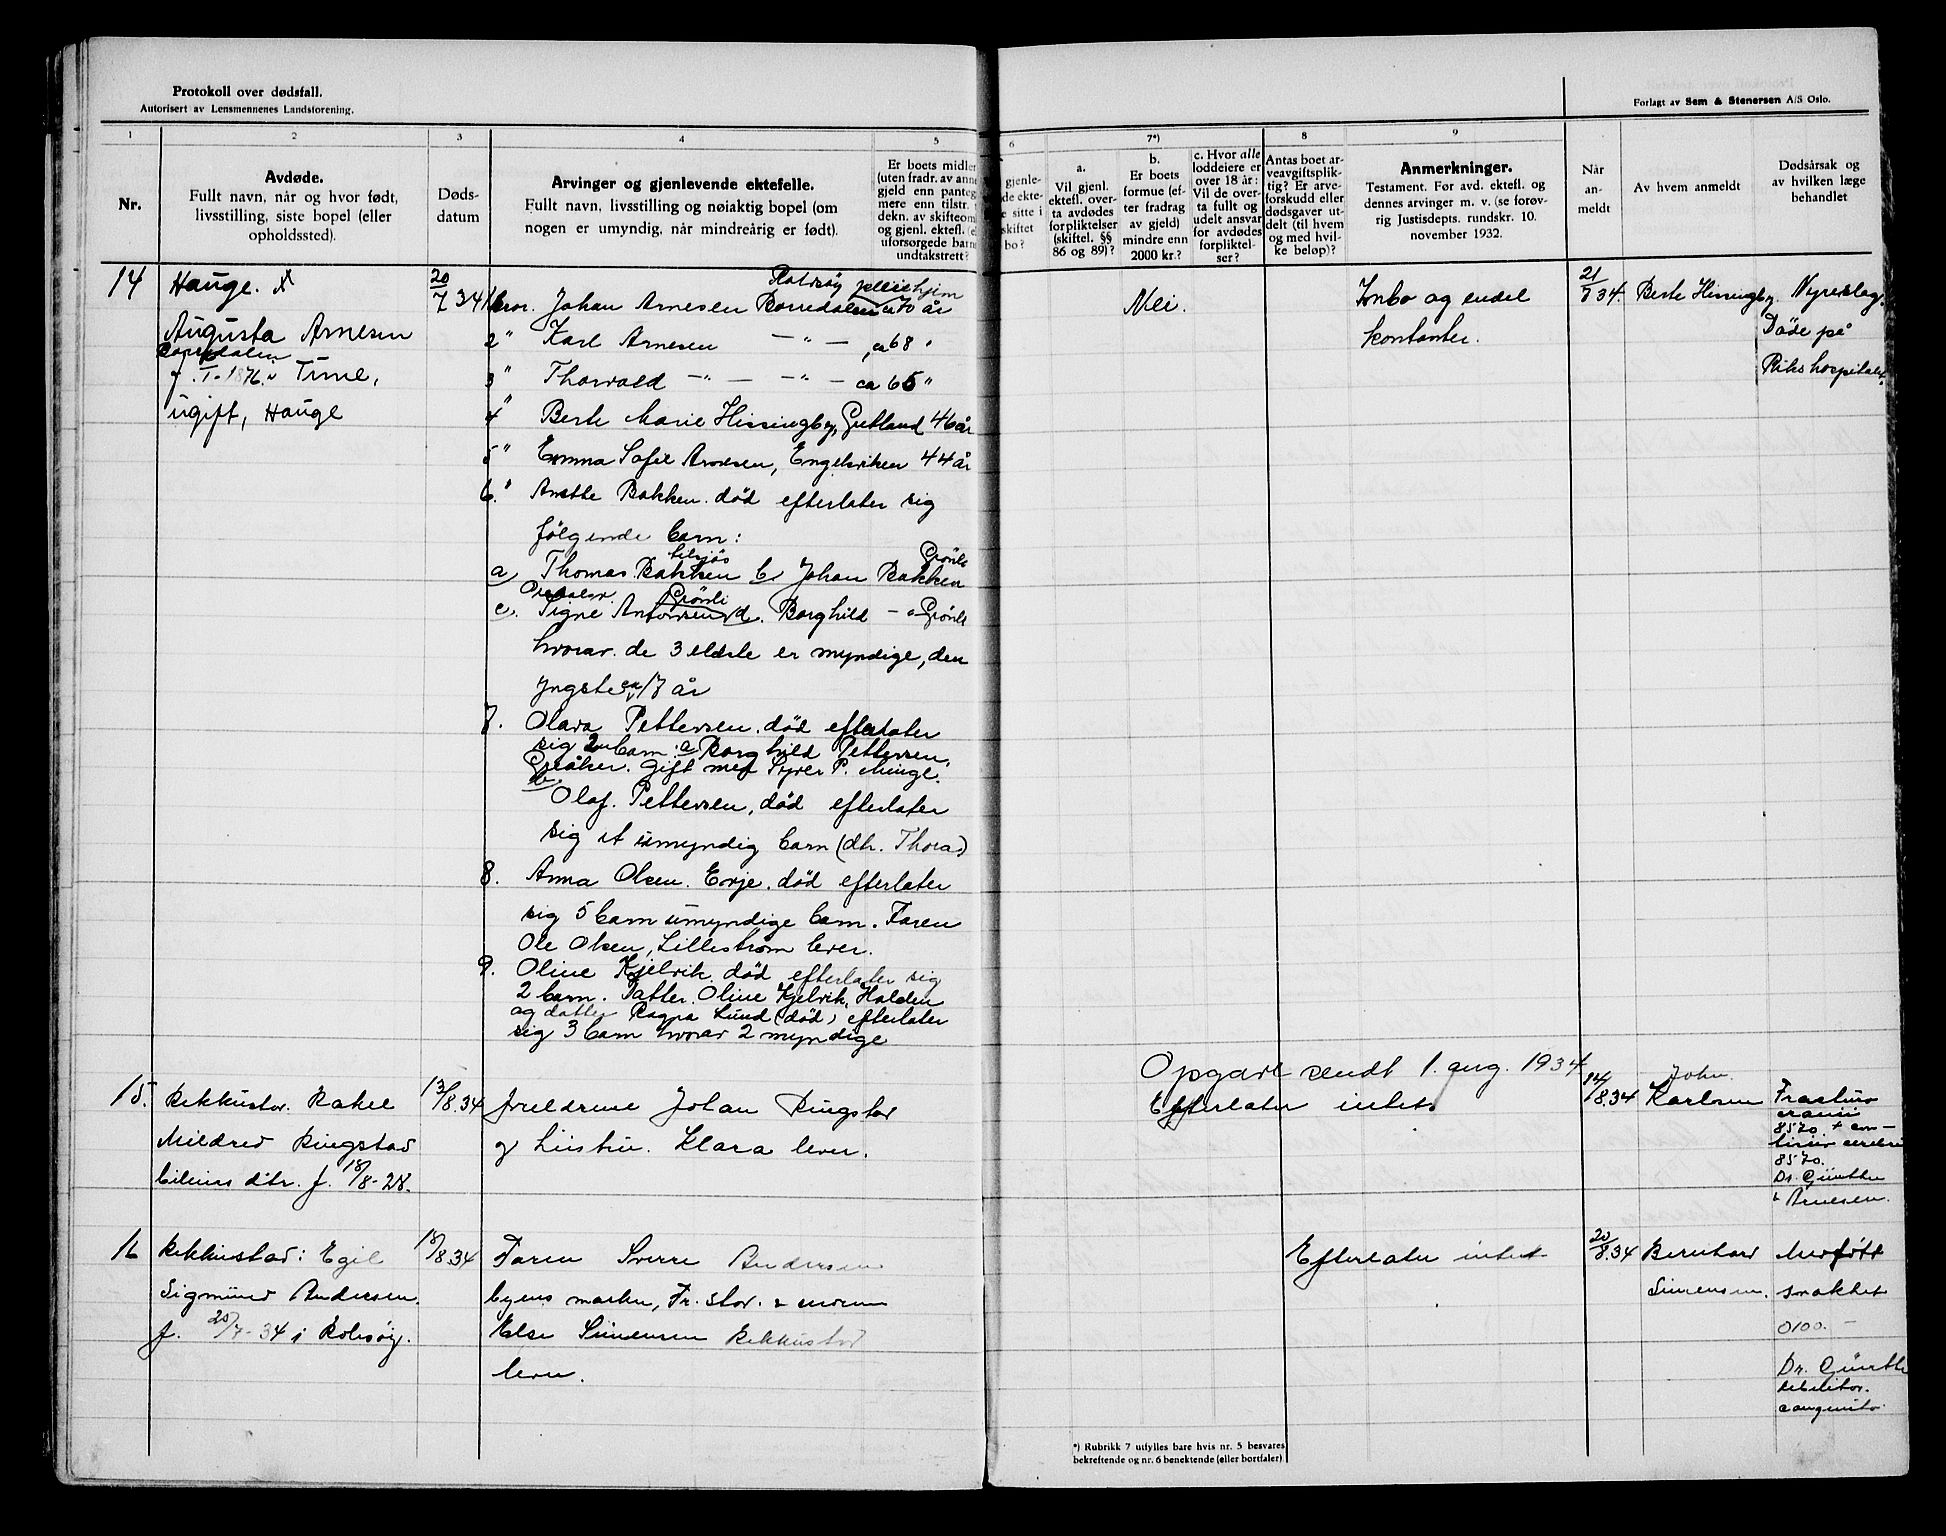 Protokoll over dødsfall.
Autorisert av Lensmennenes Landsforening.
Forlagt av Sem & Stenersen A/S Oslo.
1
2
3
4
5
6
7*)
8
9
Nr.
Avdøde.
Fullt navn, når og hvor født,
livsstilling, siste bopel (eller
opholdssted).
Døds-
datum
Arvinger og gjenlevende ektefelle.
Fullt navn, livsstilling og nøiaktig bopel (om
nogen er umyndig, når mindreårig er født).
Er boets midler
(uten fradr. av anne
gjeld enn panteg
mere enn tilstr.
dekn. av skifteom
og gjenl. ektef. (e
uforsørgede barn
undtakstrett?
gjenle-
de ekte-
e sitte i
skiftet
bo?
a.
Vil gjenl.
ektefl. over-
ta avdødes
forpliktelser
(skiftel. §§
86 og 89)?
b.
Er boets
formue (ef-
ter fradrag
av gjeld)
mindre enn
2000 kr.?
c. Hvor alle
loddeiere er
over 18 år:
Vil de over-
ta fullt og
udelt ansvar
for avdødes
forpliktel-
ser?
Antas boet ar-
veavgiftsplik-
tig? Er arve-
forskudd eller
dødsgaver ut-
delt (til hvem
og med hvil-
ke beløp)?
Anmerkninger.
Testament. Før avd. ektefl. og
dennes arvinger m. v. (se forøv-
rig Justisdepts. rundskr. 10.
november 1932.
Når
an-
meldt
Av hvem anmeldt
Dødsårsak og
av hvilken læge
behandlet
14
Hauge.
Augusta Arnesen
Borredalen
f. I-1876. i Tune,
ugift, Hauge
20/7 34
Rolvsøy pleiehjem
Johan Arnesen Borredalen 70 år
2" Karl Arnesen — " — ca 68 "
3" Thorvald — " — — " — ca 65 "
4" Berte Marie Hissingby, Gretland 46 år
5" Emma Sofie Arnesen, Engelsviken 44 år
6." Anette Bakken. død efterlater sig
følgende barn:
a Thomas Bakken b. Johan Bakken
Grønli
c. Signe Antonsen d. Borghild — " Grønli
Grønli
hvorav de 3 eldste er myndige, den
yngste ca 17 år
7. Olava Pettersen. død efterlater
sig 2 barn: a Borghild Pettersen,
Greåker. gift med Syver P. Minge.
b
Olaf. Pettersen, død efterlater
sig et umyndig barn (dtr. Thora)
8. Anna Olsen. Evje. død efterlater
sig 5 barn umyndige barn. Faren
Ole Olsen, Lillestrøm lever.
9. Oline Kjelvik død efterlater sig
2 barn. Datter Oline Kjelvik, Halden
og datter Ragna Lund (død) efterlater
sig 3 barn hvorav 2 myndige
Nei.
Innbo og endel
kontanter.
21/7 34.
Berte Hissingby.
Nyreslag.
Døde på
Rikshospitalet.
Opgave sendt 1. aug. 1934
15.
Rekkustad. Rakel
Mildred Ringstad
f. 18/8-28.
13/8.34
Foreldrene Johan Ringstad
og hustru. Klara lever.
Efterlater intet.
14/8.34
John.
Karlsen
Fractura
cranii
8570. +
8570.
Dr. Günther
& Arnesen.
16
Rekkustad: Egil
Sigmund Andersen.
f. 20/7-34 i Rolvsøy.
18/8.34
Faren Sverre Andersen
byens marker, Fr.stad. & moren
Else Simensen Rekkustad
lever.
Efterlater intet
20/8.34
Bernhard
Simensen.
Medfött
svakhet
0100. —
Dr. Günther
debilitas.
congenita.
*) Rubrikk 7 utfylles bare hvis nr. 5 besvares
bekreftende og nr. 6 benektende (eller bortfaler)